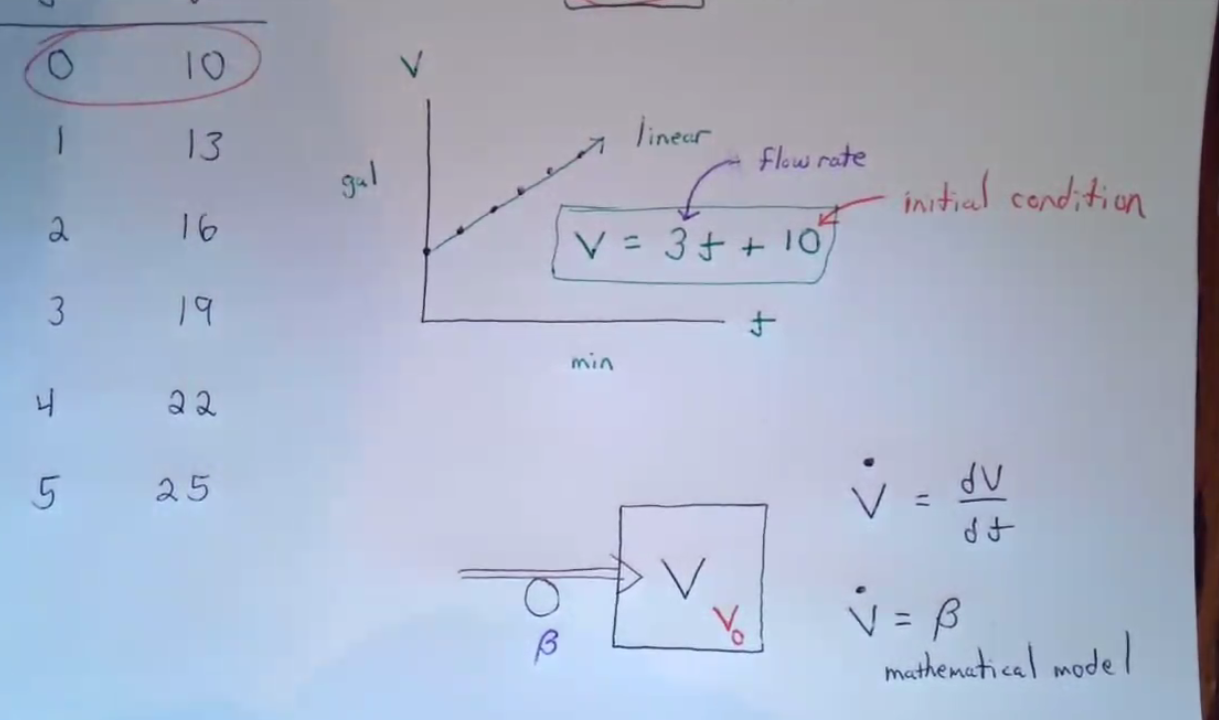 0 10
1 13
2 16
3 19
4 22
5 25
V
gal
linear
flow rate
initial condition
V = 3t + 10
t
min
V
V₀
β
V̇ = dV/dt
V̇ = β
mathematical model